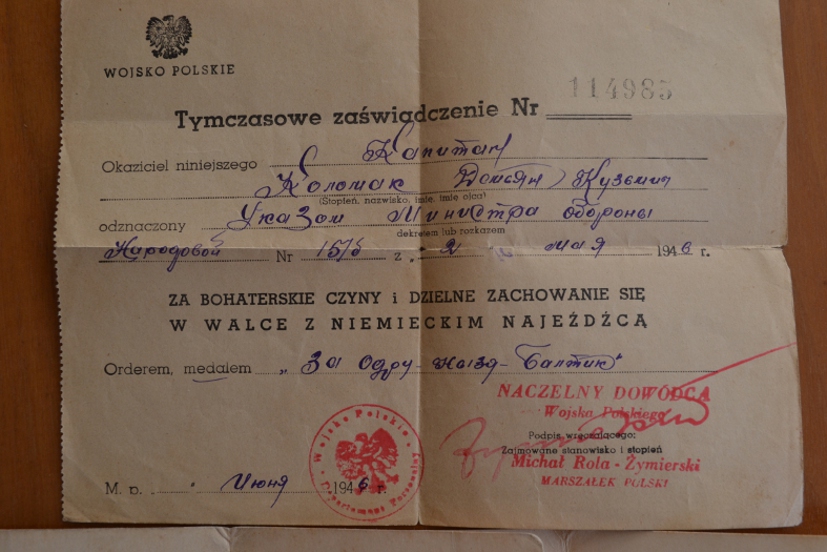 WOJSKO POLSKIE
Tymczasowe zaświadczenie Nr 114985
Okaziciel niniejszego Капитан
Коломак Демьян Кузьмич
(Stopień, nazwisko, imię, imię ojca)
odznaczony Указом Министра обороны
dekretem lub rozkazem
Народовой Nr z „ 2 мая 1946 r.
ZA BOHATERSKIE CZYNY i DZIELNE ZACHOWANIE SIĘ
W WALCE Z NIEMIECKIM NAJEŹDŹCĄ
Orderem, medalem „За Одру-Низя-Балтик"
NACZELNY DOWÓDCA
Wojska Polskiego
Podpis wręczającego:
Zajmowane stanowisko i stopień
Michał Rola - Żymierski
MARSZAŁEK POLSKI
M. p. Июня 1946 r.
Wojsko Polskie
Departament Personalny